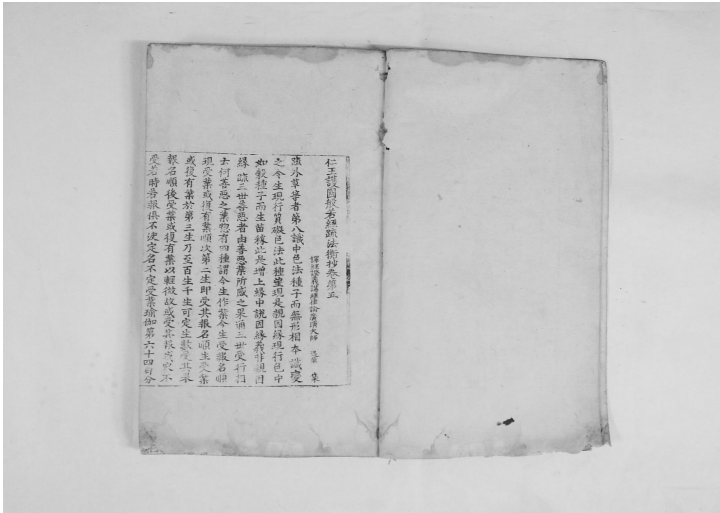 仁王護國般若經疏法衡抄卷第五
譯經證義講經律論廣演大師 遇榮 集
疏外草等者第八識中色法種子而無形相本識變
之今生現行質礙色法此種望現是親因緣現行色中
如穀種子而生苗稼此是增上緣中說因緣義非親因
緣 疏三世善惡者由善惡業所感之果通三世受行相
云何善惡之業惣有四種謂今生作業今生受報名順
現受業或復有業順次第二生即受其報名順生受業
或復有業於第三生乃至百生千生可定生數受其果
報名順後受業或復有業以輕微故或受其報或專不
受若時吾報俱不決定名不定受業瑜伽第六十四句分